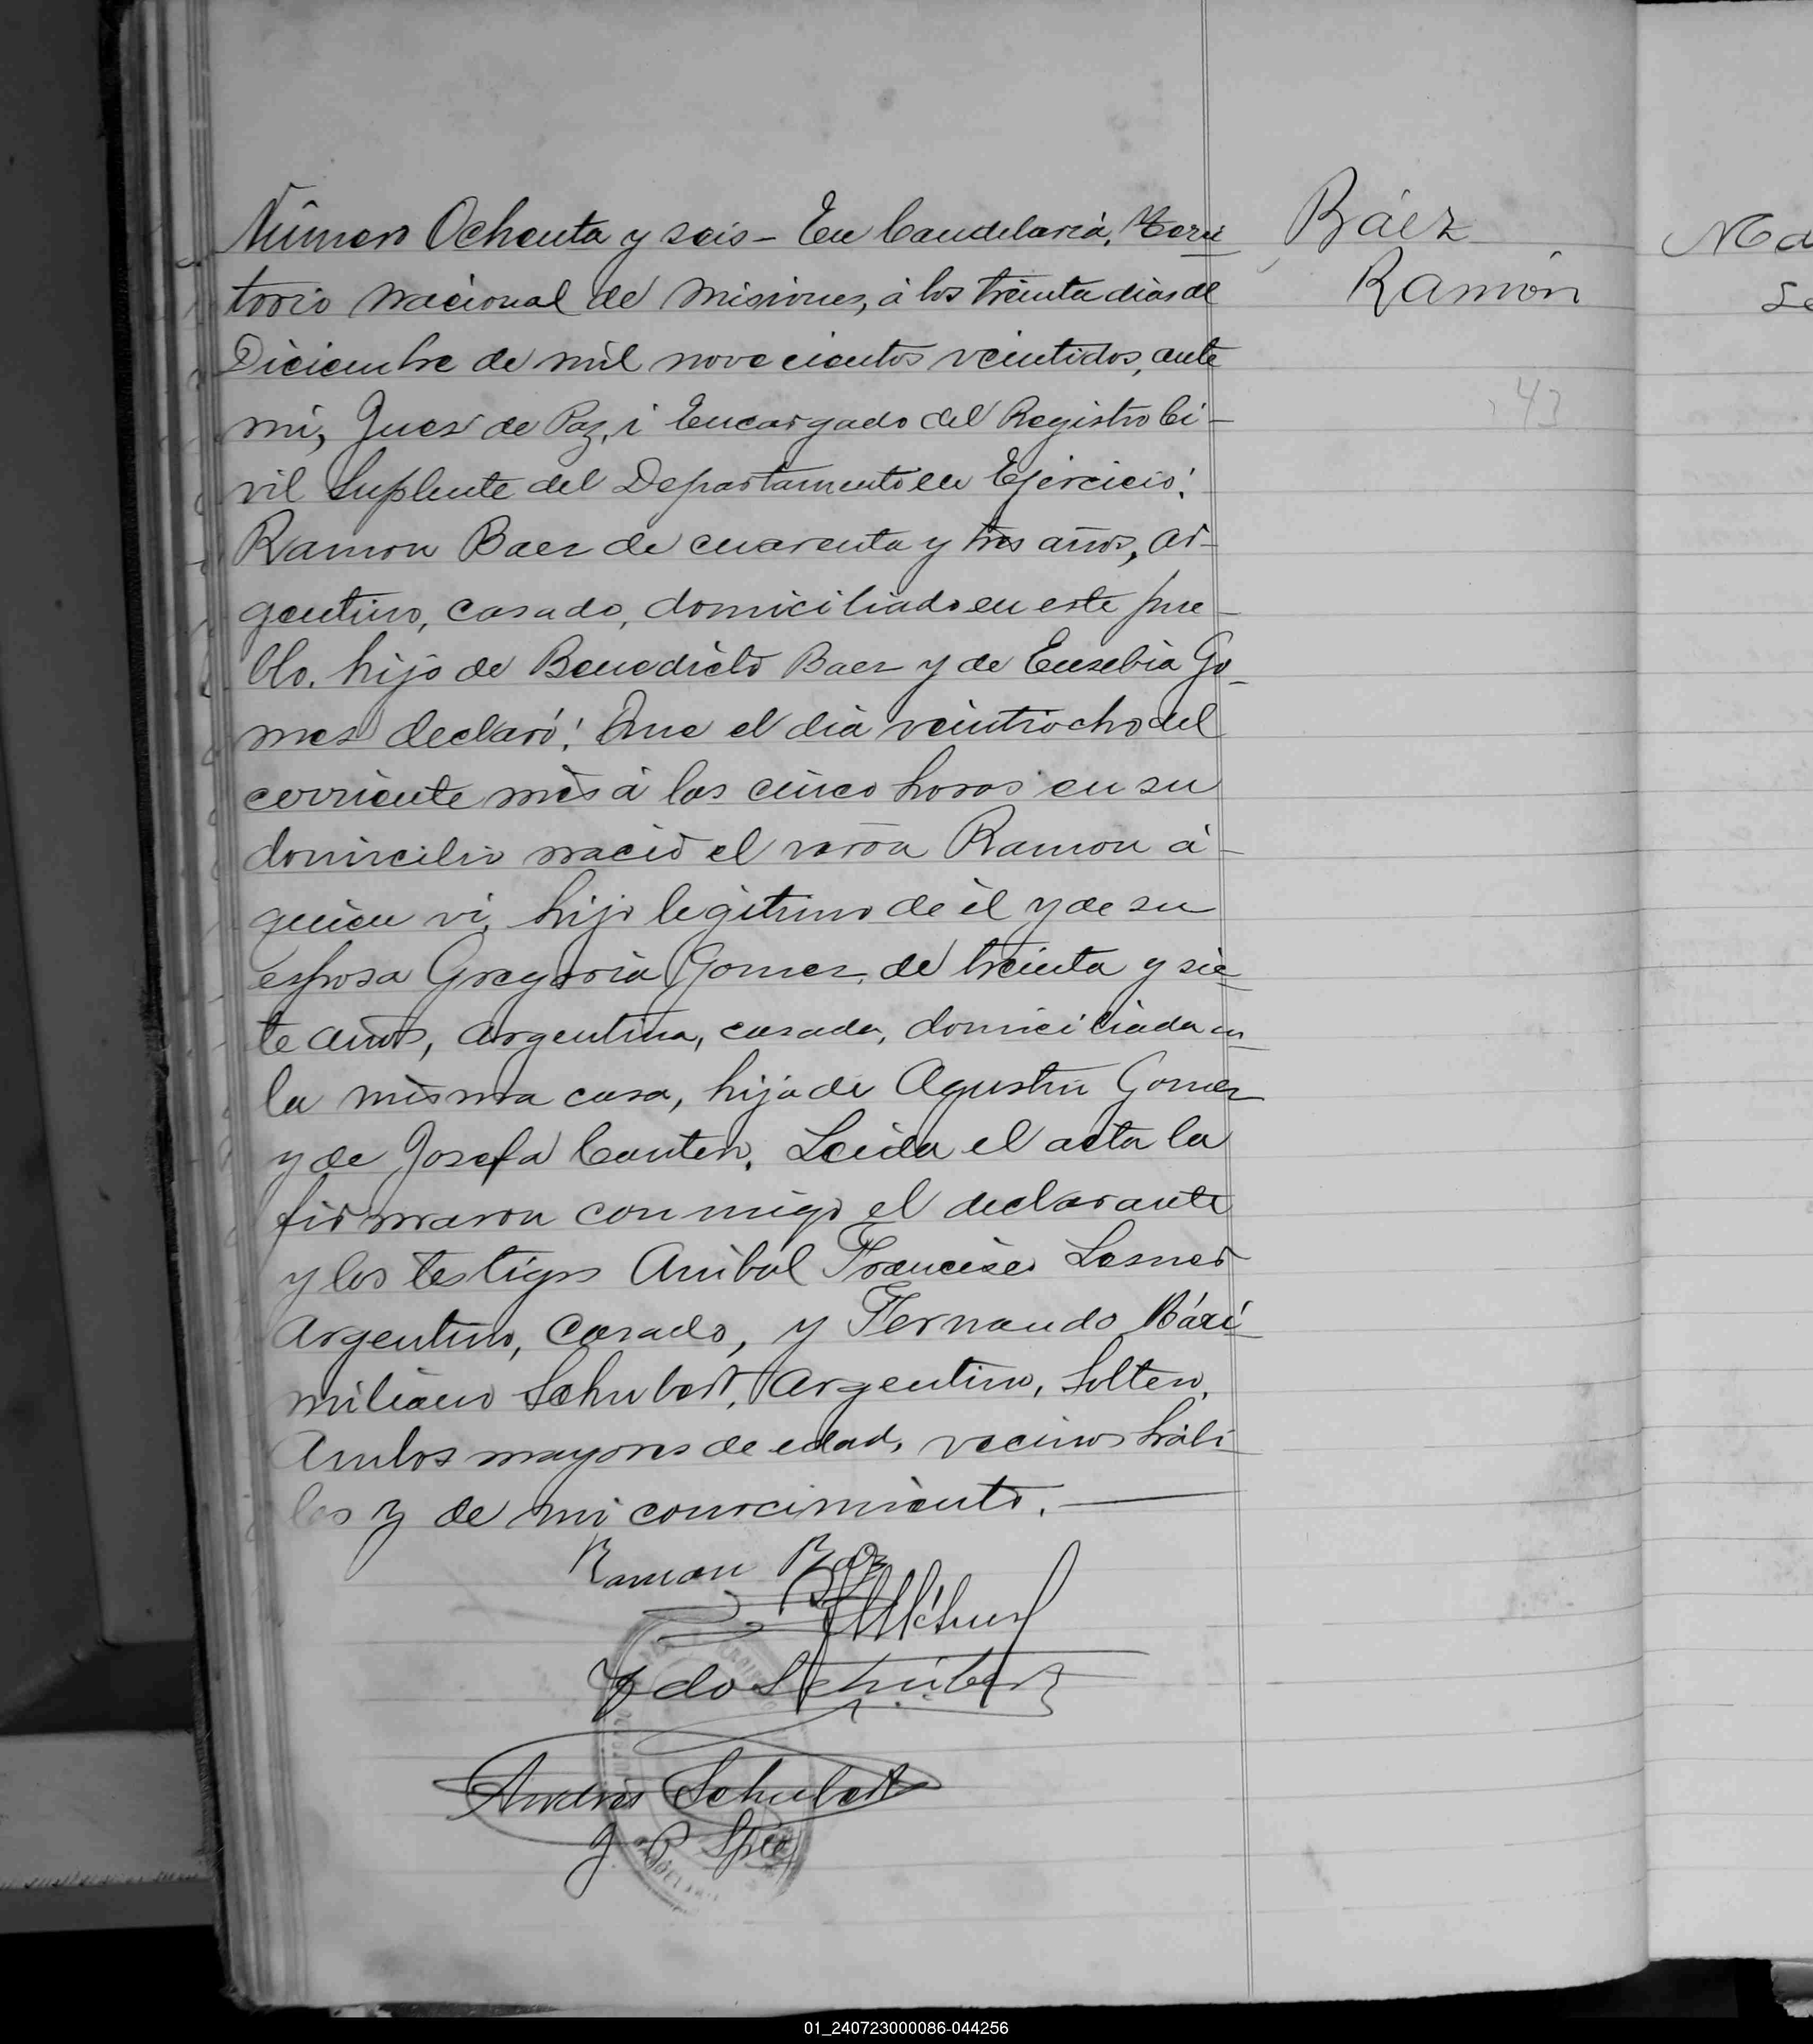 Báez
Ramón
43
Número Ochenta y seis - En Candelaria, Terri
torio nacional de Misiones, á los treinta dias de
Diciembre de mil novecientos veintidos, ante
mi, Juez de Paz, i Encargado del Registro Ci-
vil Suplente del Departamento en Ejercicio:
Ramon Baez de cuarenta y tres años, ar-
gentino, casado, domiciliado en este pue-
blo. hijo de Benedicto Baez y de Eusebia Go-
mez declaró: Que el dia veintiocho del
corriente mes á las cinco horas en su
domicilio nació el varon Ramon á
quien vi, hijo legitimo de él y de su
esposa Gregoria Gomez, de treinta y sie
te años, argentina, casada, domiciliada en
la misma casa, hija de Agustin Gomez
y de Josefa Cantero. Leida el acta la
firmaron conmigo el declarante
y los testigos Anibal Francisco
Argentino, Casado, y Fernando Maxi
miliano Schubert, Argentino, Soltero,
Ambos mayores de edad, vecinos hábi
les y de mi conocimiento.
Ramon Baez
Fdo Schubert
Andrés Schubert
J P Spte
Ma
01_240723000086-044256